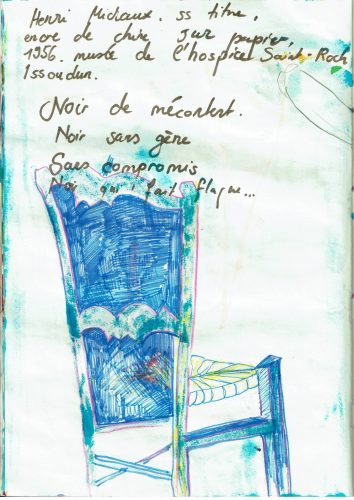 Henri Michaux. ss titre,
encre de chine sur papier,
1956. musée de l'hospice Saint-Roch
Issoudun.
Noir de mécontent.
Noir sans gêne
Sans compromis
Noir qui fait flaque...